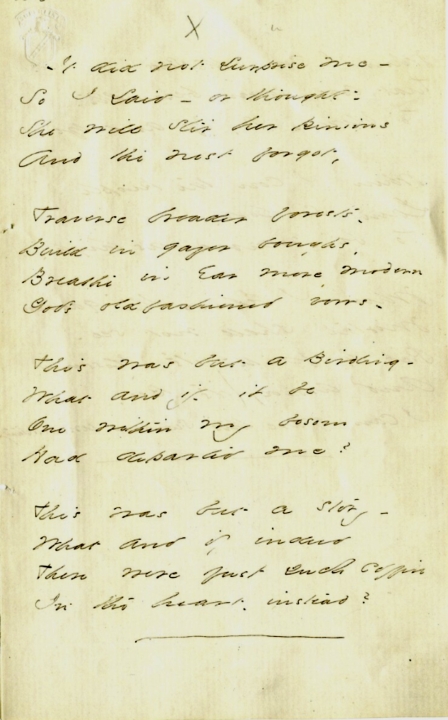 X
It did not surprise me –
So I said – or thought –
She will stir her pinions
And the nest forgot,
Traverse broader forests –
Build in gayer boughs,
Breathe in Ear more modern
God's old fashioned vows –
This was but a Birdling –
What and if it be
One within my bosom
Had departed me?
This was but a story –
What and if indeed
There were just such coffin
In the heart, instead?